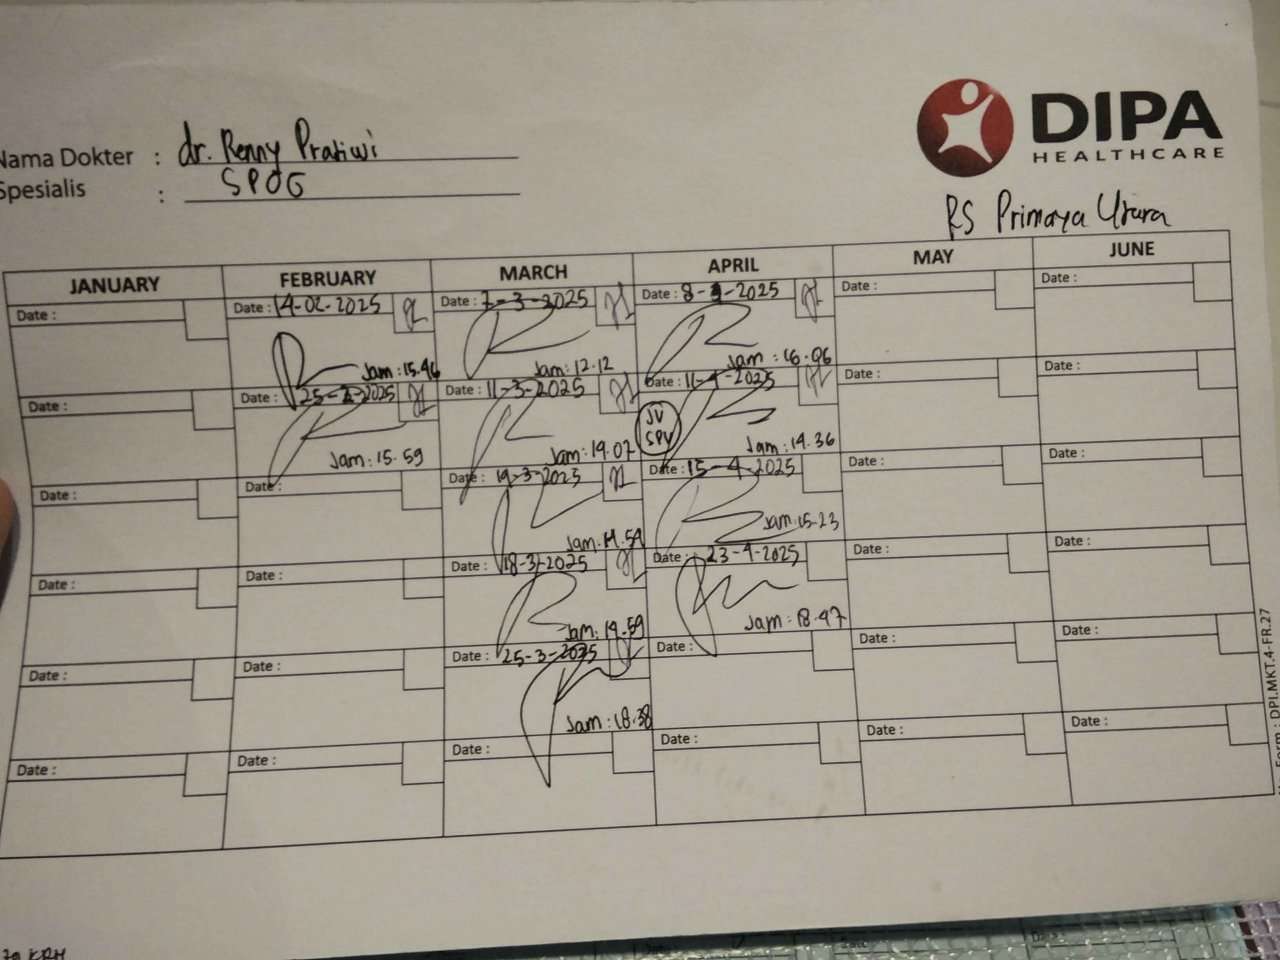 DIPA
HEALTHCARE
Nama Dokter : dr. Renny Pratiwi
Spesialis : SPOG
RS Primaya Utara
JANUARY FEBRUARY MARCH APRIL MAY JUNE
Date : Date : 14-02-2025 Date : 7-3-2025 Date : 8-4-2025 Date : Date :
Jam : 15.46 Jam : 12.12 Jam : 16.06
Date : Date : 25-2-2025 Date : 11-3-2025 Date : 11-4-2025 Date : Date :
JV
SPV
Jam : 15.59 Jam : 19.07 Jam : 14.36
Date : Date : Date : 14-3-2025 Date : 15-4-2025 Date : Date :
Jam : 14.59 Jam : 15.23
Date : Date : Date : 18-3-2025 Date : 23-4-2025 Date : Date :
Jam : 14.59 Jam : 18.47
Date : Date : Date : 25-3-2025 Date : Date : Date :
Jam : 18.38
Date : Date : Date : Date : Date : Date :
Form : DPI.MKT.4-FR.27